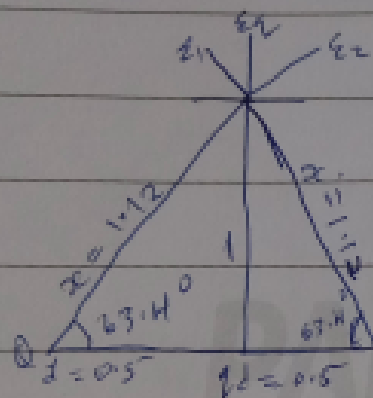 Eq
E1 E2
x = 1.12
x = 1.12
1
63.4°
63.4°
Q d = 0.5 qd = 0.5